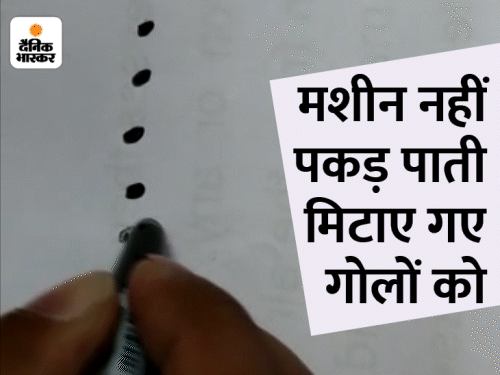 दैनिक
भास्कर
मशीन नहीं
पकड़ पाती
मिटाए गए
गोलों को